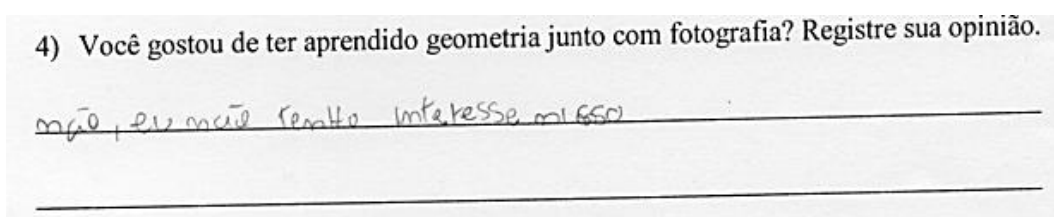 4) Você gostou de ter aprendido geometria junto com fotografia? Registre sua opinião.
não, eu não tenho interesse nisso